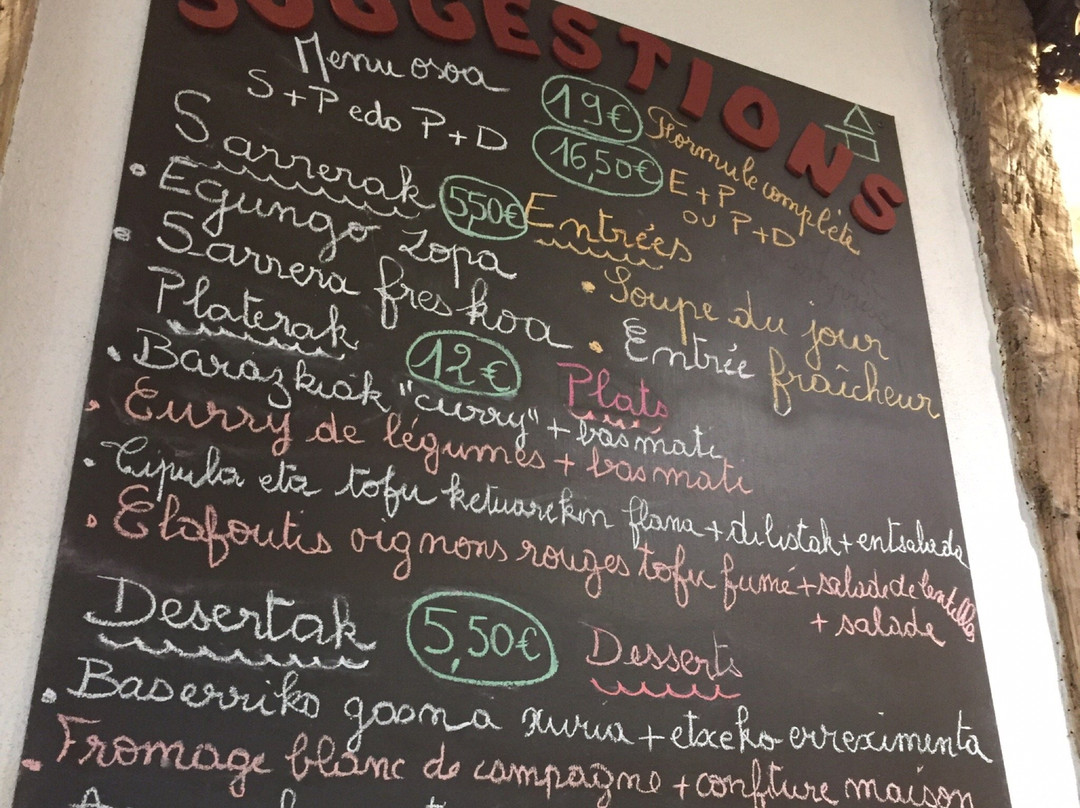 SUGGESTIONS
Menu osoa 19€ Formule complète
S+P edo P+D 16,50€ E+P
ou P+D
Sarrerak 5,50€ Entrées
• Egungo zopa • Soupe du jour
• Sarrera freskoa • Entrée fraîcheur
Platerak 12€ Plats
• Barazkiak "curry" + basmati
• Curry de légumes + basmati
• Tipula eta tofu ketuarekin flana + dilistak + entsalada
• Clafoutis oignons rouges tofu fumé + salade de lentilles
+ salade
Desertak 5,50€ Desserts
• Baserriko gasna xuria + etxeko erreximenta
• Fromage blanc de campagne + confiture maison